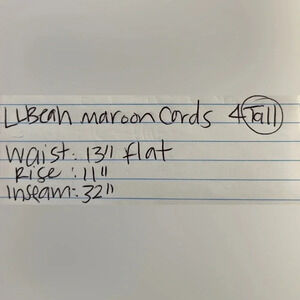 LLBean maroon Cords 4 Tall
Waist: 13" flat
Rise: 11"
Inseam: 32"